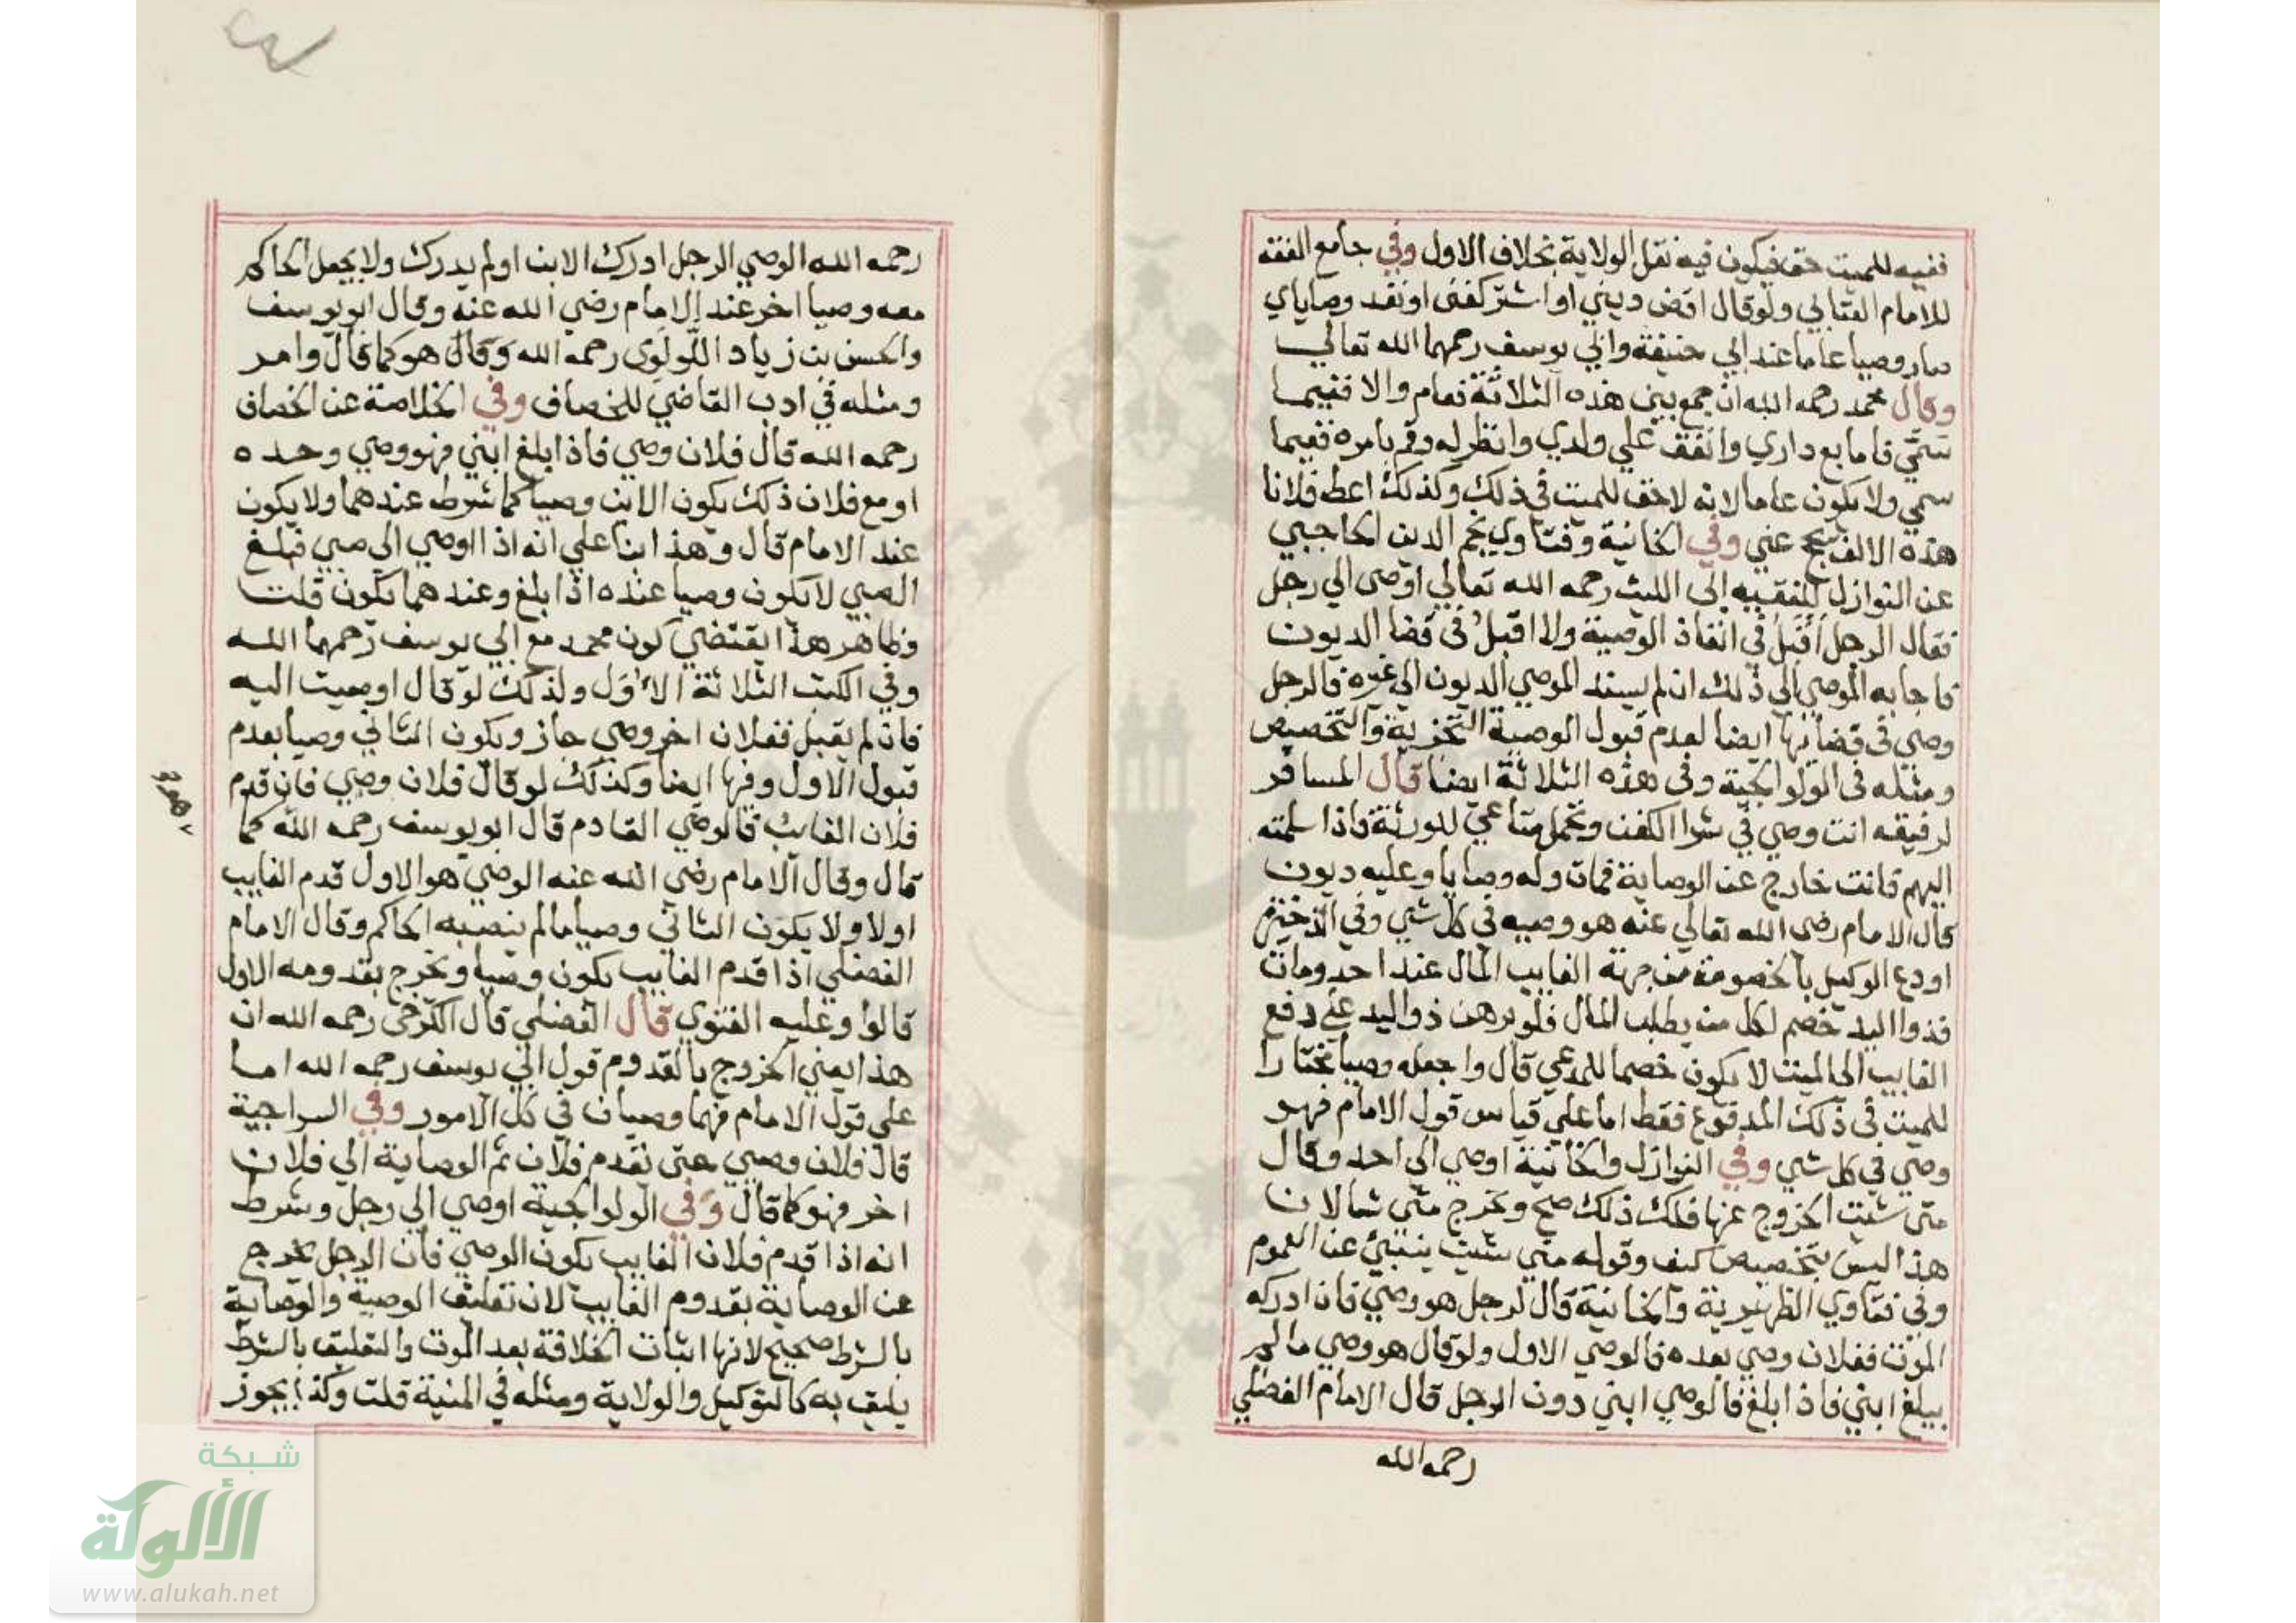 ففيه للميت حق فيكون فيه نقل الولاية بخلاف الاول وفي جامع الفقه
للامام العتابي ولو قال اقض ديني او اشتر كفنى او نفد وصاياي
صار وصيا عاما عند ابي حنيفة وابي يوسف رحمهما الله تعالي
وقال محمد رحمه الله ان جمع بين هذه الثلاثة فعام والا ففيما
سمّي فاما بع داري وانفق علي ولدي وانظر له وقم بامره ففيما
سمي ولا يكون عاما لانه لا حق للميت في ذلك وكذلك اعط فلانا
هذه الالف يحج عني وفي الخانية وفتاوي نجم الدين الخاجبي
عن النوازل للفقيه ابى الليث رحمه الله تعالي اوصى الي رجل
فقال الرجل أقبل في انفاذ الوصية ولا اقبل في قضا الديون
فاجابه الموصي الي ذلك ان لم يسند الموصي الديون الي غيره فالرجل
وصي في قضائها ايضا لعدم قبول الوصية التجزية والتخصيص
ومثله فى الولوالجية وفى هذه الثلاثة ايضا قال المسافر
لرفيقه انت وصي في شرا الكفن وتحمل متاعي للورثة فاذا سلمته
اليهم فانت خارج عن الوصاية فمات وله وصايا وعليه ديون
قال الامام رضى الله تعالي عنه هو وصيه في كل شي وفي الذخيرة
اودع الوكيل بالخصومة من جهة الغايب المال عند احد ومات
فذوا اليد خصم لكل من يطلب المال فلو برهن ذو اليد علي دفع
الغايب الى الميت لا يكون خصما للمدعي قال واجعله وصيا مختارا
للميت في ذلك المدفوع فقط اما علي قياس قول الامام فهو
وصي في كل شي وفي النوازل والخانية اوصي الي احد وقال
متى شيت الخروج عنها فلك ذلك صح ويخرج متي شا لان
هذا ليس بتخصيص كيف وقوله متي شيت ينبئ عن العموم
وفي فتاوي الظهيرية والخانية قال لرجل هو وصي فان ادركه
الموت ففلان وصي بعده فالوصي الاول ولو قال هو وصي ما لم
يبلغ ابني فاذا بلغ فالوصي ابني دون الرجل قال الامام الفضلي
رحمه الله
رحمه الله الوصي الرجل ادرك الابن او لم يدرك ولا يجعل الحاكم
معه وصيا اخر عند الامام رضي الله عنه وقال ابو يوسف
والحسن بن زياد اللؤلوى رحمه الله وقال هو كما قال وامر
ومثله في ادب القاضي للخصاف وفي الخلاصة عن الخصاف
رحمه الله قال فلان وصي فاذا بلغ ابني فهو وصي وحده
او مع فلان ذلك يكون الابن وصيا كما شرط عندهما ولا يكون
عند الامام قال وهذا بنا علي انه اذا اوصي الي صبي فبلغ
الصبي لا يكون وصيا عنده اذا بلغ وعندهما يكون قلت
وظاهر هذا يقتضي كون محمد مع ابي يوسف رحمهما الله
وفي الكتب الثلاثة الاول ولذلك لو قال اوصيت اليه
فان لم يقبل ففلان اخر وصي جاز ويكون الثاني وصيا بعدم
قبول الاول وفيها ايضا وكذلك لو قال فلان وصي فان قدم
فلان الغايب فالوصي القادم قال ابو يوسف رحمه الله كما
قال وقال الامام رضي الله عنه الوصي هو الاول قدم الغايب
اولا ولا يكون الثاني وصيا ما لم ينصبه الحاكم وقال الامام
الفضلي اذا قدم الغايب يكون وصيا ويخرج بقدومه الاول
قالوا وعليه الفتوي قال الفضلي قال الكرخي رحمه الله ان
هذا يعني الخروج بالقدوم قول ابي يوسف رحمه الله اما
علي قول الامام فهما وصيان في كل الامور وفي السراجية
قال فلان وصيي حتى يقدم فلان ثم الوصاية الي فلان
اخر فهو كما قال وفي الولوالجية اوصي الي رجل وشرط
انه اذا قدم فلان الغايب يكون الوصي فان الرجل يخرج
عن الوصاية بقدوم الغايب لان تعليق الوصية والوصاية
بالشرط صحيح لانها اثبات الخلافة بعد الموت والتعليق بالشرط
يليق به كالتوكيل والولاية ومثله في المنية قلت وكذا يجوز
شبكة
الألوكة
www.alukah.net